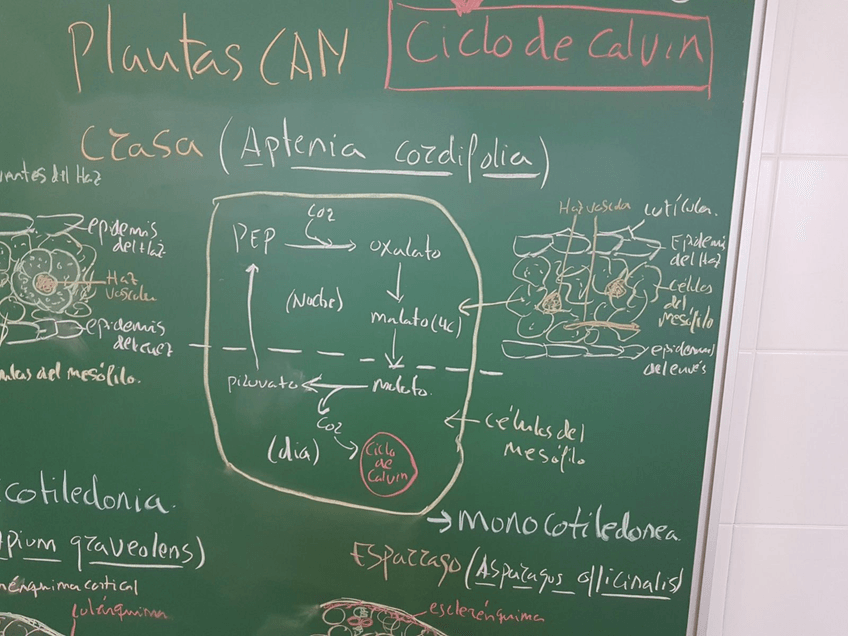 Plantas CAM
Ciclo de Calvin
Crasa (Aptenia cordifolia)
del Haz
epidermis
del Haz
Haz
Vascular
epidermis
del mesófilo.
CO2
PEP
oxalato
(Noche)
malato (4C)
piruvato
malato.
CO2
(dia)
Ciclo
de
Calvin
células del
mesófilo
Haz vascular
cutícula.
Epidermis
del Haz
células
del
mesófilo
epidermis
del envés
cotiledonia.
pium graveolens)
cortical
colénquima
→ monocotiledonea.
Esparrago (Asparagus officinalis)
esclerénquima